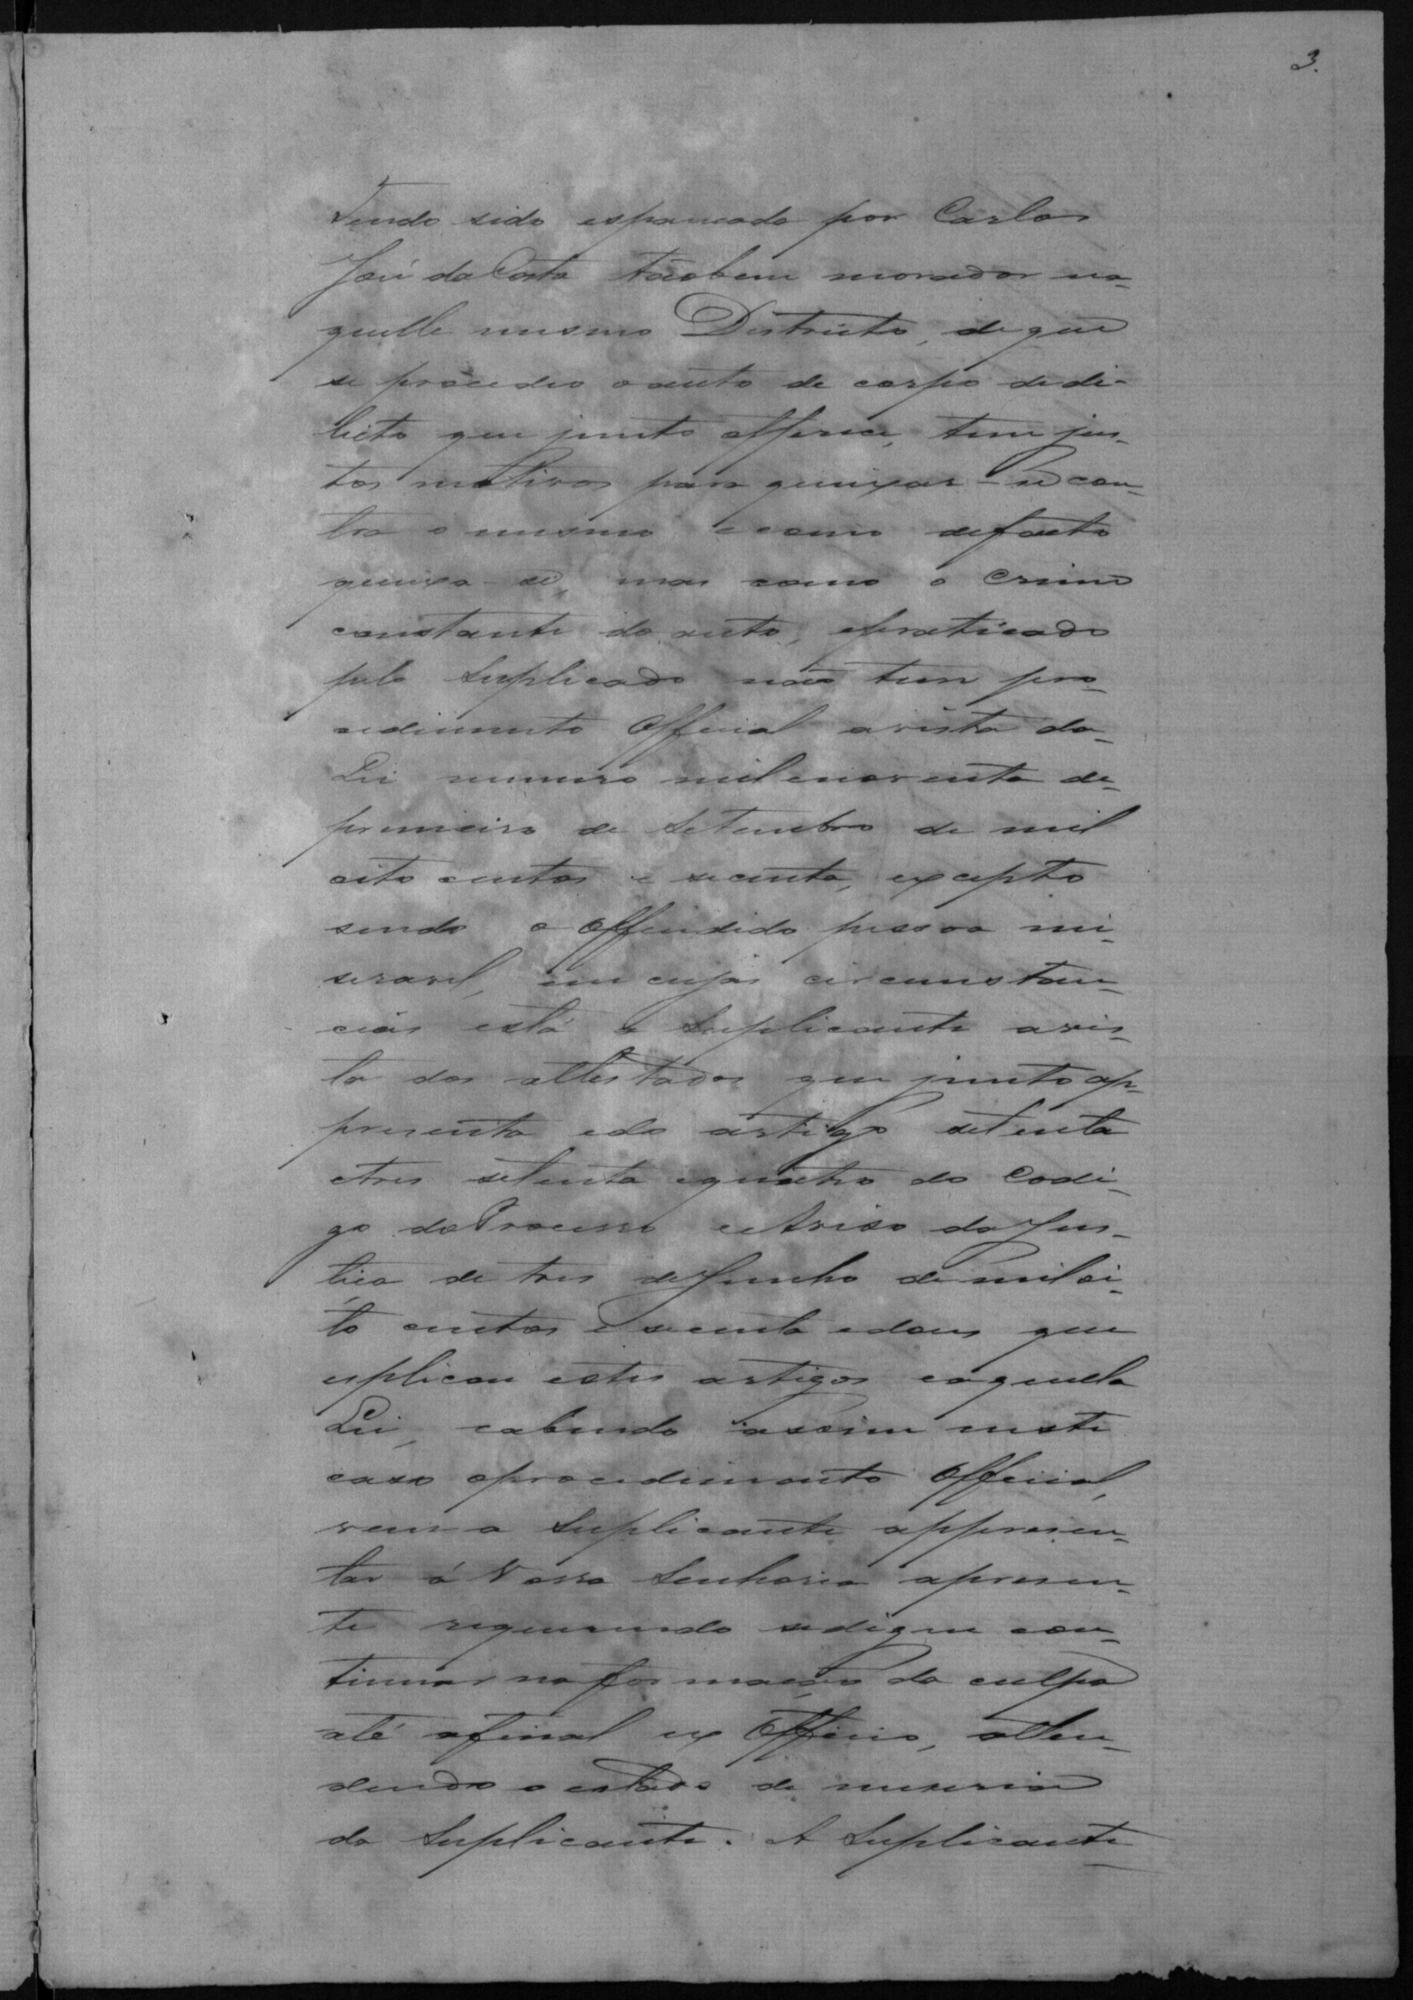 3.
Tendo sido espancada por Carlos
José da Costa tãobem morador na-
quelle mesmo Districto, de que
se procedeo o auto de corpo de de-
licto que junto offerece, tem jus-
tos motivos para queixar-se con-
tra o mesmo e como de facto
queixa-se, mas como o crime
constante do auto, e praticado
pelo Suplicado não tem pro-
cedimento Official avista da
Lei numero mil e noventa de
primeiro de Setembro de mil
oito centos e secenta, excepto
sendo o Offendido pessoa mi-
seravel, em cujas circunstan-
cias está a Suplicante avis-
ta dos attestados que junto ap-
presenta e do artigo setenta
e tres setenta e quatro do Codi-
go do Processo e Aviso da Jus-
tiça de tres de Junho de mil oi-
to centos e secenta e dous que
explicou estes artigos e aquella
Lei, cabendo assim neste
caso o procedimento Official,
vem a Suplicante appresen-
tar á Vossa Senhoria a presen-
te requerendo se digne con-
tinuar na formação da culpa
até afinal ex Officio, atten-
dendo o estado de miseria
da Suplicante. A Suplicante